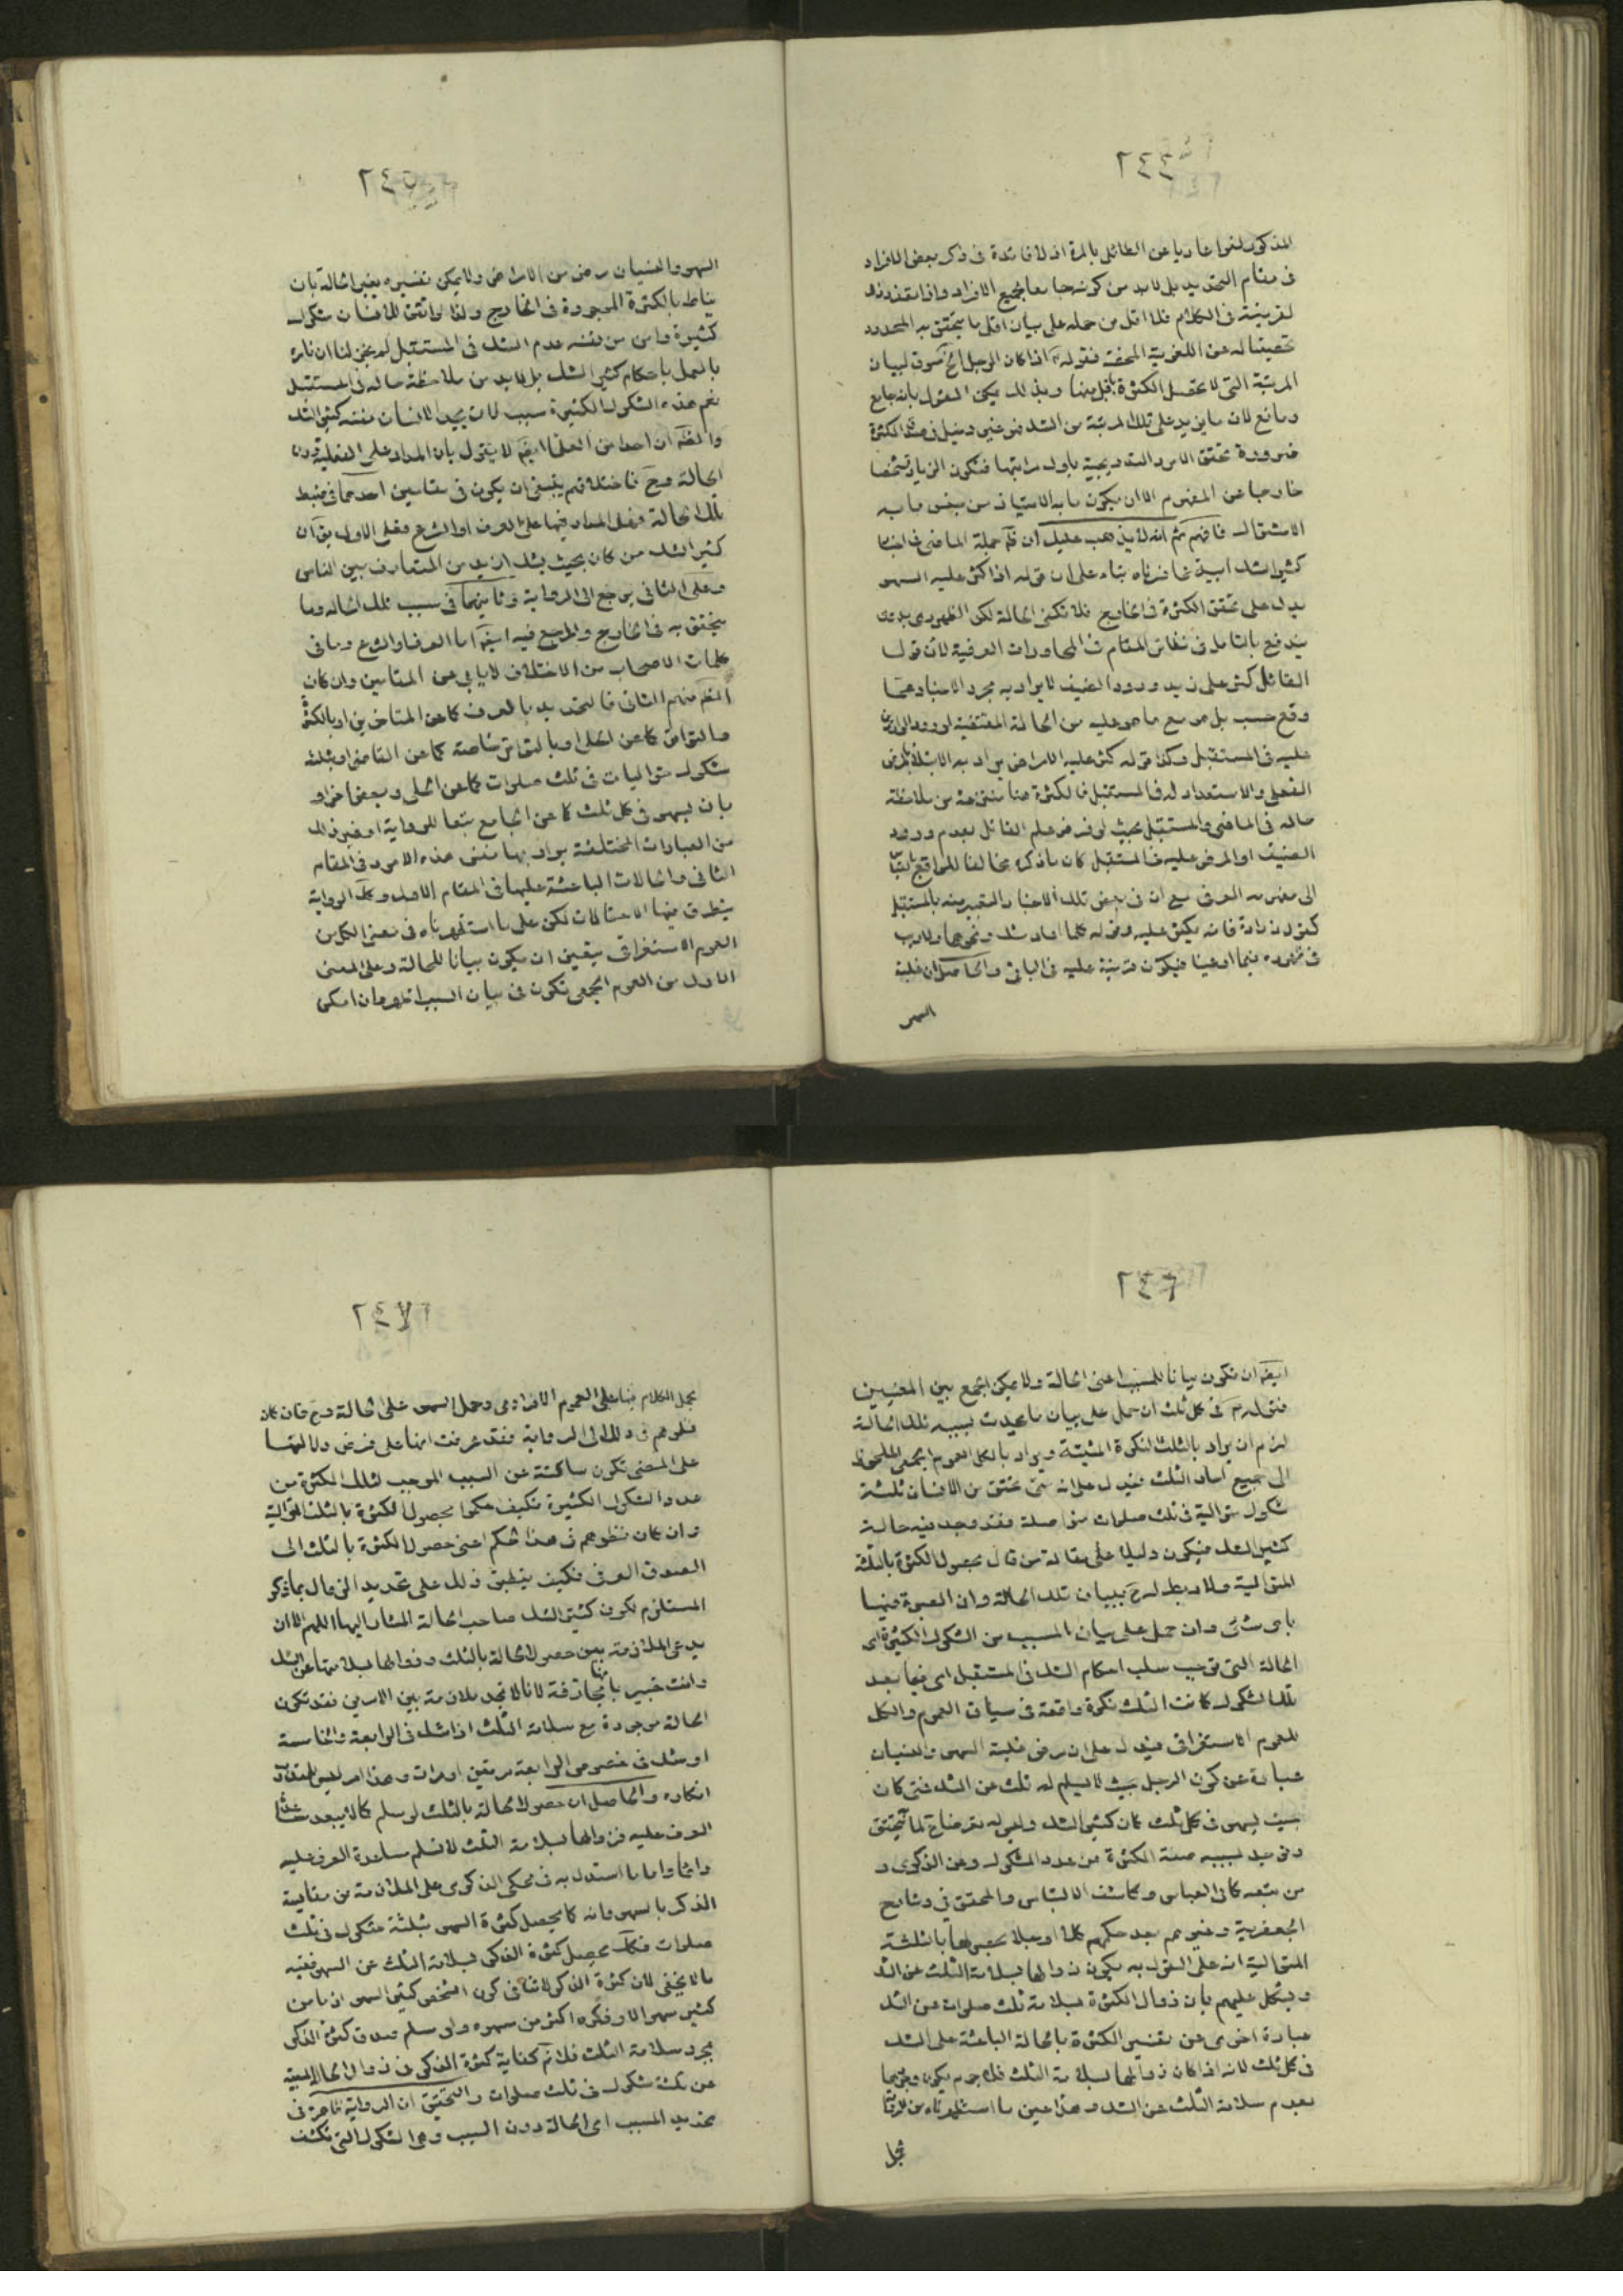 ٢٤٤
المذكور لغوا عاريا عن الطائل بالمرة اذ لا فائدة فى ذكر بعض الافراد
فى مقام التحديد بل لابد من كونه جامعا لجميع الافراد واذا
لقرينية فى الكلام فلا اقل من حمله على بيان اقل ما يتحقق به المحدود
عن اللغوية المحضة فقوله اذا كان الرجل الخ لبيان
المرتبة التى لا تحصل الكثرة باقل منها وبذلك يمكن القول بانه جامع
ومانع لان ما يزيد على تلك المرتبة من الشك فهو دخيل فى الكثرة
ضرورة تحقق الامر التدريجية باول مراتبها فتكون الزيادة
خارجا عن المفهوم الا ان يكون ما به الامتياز من ما به
الاشتراك فافهم ثم انه لا يذهب عليك ان جملة الماضى
كثير الشك بناء على ان قوله اذا كثر عليه السهو
يدل على تحقق الكثرة فى الخارج فلا تكفى الحالة لكن الظهور
يندفع بالتامل فى نظائر المقام فى المحاورات العرفية لان قول
القائل كثر على زيد ورود الضيف لا يراد به مجرد الاخبار عما
وقع حسب بل هو مع ما هو عليه من الحالة المقتضية لورود
عليه فى المستقبل وكذا قوله كثر عليه الامراض يراد به الابتلاء
الفعلى والاستعداد له فى المستقبل فالكثرة هنا منتزعة من ملاحظة
حاله فى الماضى والمستقبل بحيث لو فرض علم القائل بعدم ورود
الضيف او المرض عليه فى المستقبل كان ما ذكره مخالفا للواقع
الى العرف مع ان فى بعض تلك الاخبار التعبير عنه بالمستقبل
كقول زرارة فانه يكثر عليه وقوله كلما اعاد شك ونحوهما ولا ريب
فى ظهوره فيما ادعينا فيكون قرينة عليه فى الباقى والحاصل ان غلبة
السهو
٢٤٥
السهو والنسيان مرض من الامراض ولا يمكن تفسيره بغير الحالة بان
يناط بالكثرة الموجودة فى الخارج ولذا لو اتفق للانسان شكوك
كثيرة وامن من نفسه عدم الشك فى المستقبل لم يجز لنا ان نامره
بالعمل باحكام كثير الشك بل لابد من ملاحظة حاله فى المستقبل
نعم هذه الشكوك الكثيرة سبب لان يجد الانسان نفسه كثير الشك
ان احدا من العلماء لا يقول بان المدار على الفعلية دون
الحالة فاختلافهم ينبغى ان يكون فى مقامين احدهما فى ضبط
تلك الحالة وهل المدار فيها على العرف او الشرع فعلى الاول
كثير الشك من كان بحيث يشك ازيد من المتعارف بين الناس
وعلى الثانى يرجع الى الرواية وثانيهما فى سبب تلك الحالة وما
يتحقق به فى الخارج والمرجع فيه اما العرف او الشرع وما فى
كلمات الاصحاب من الاختلاف لا يابى عن المقامين وان كان
منهم الثانى فالتحديد بالعرف كما عن المتاخرين او بالكثرة
كما عن القاضى او بثلثة
شكوك متواليات فى ثلث صلوات كما عن الحلى وبعض اخر او
بان يسهو فى كل ثلث كما عن الجامع تبعا للرواية او غير ذلك
من العبارات المختلفة يراد بها هذه الامور فى المقام
الثانى والحالات الباعثة عليها فى المقام الاول الرواية
يتطرق فيها الاحتمالات لكن على ما استظهرناه فى معنى الكل من
العموم الاستغراقى يتعين ان يكون بيانا للحالة وعلى المعنى
الاول من العموم الجمعى تكون فى بيان السبب وان امكن
٢٤٦
ان تكون بيانا للمسبب اعنى الحالة ولا يمكن الجمع بين المعنيين
فقوله فى كل ثلث ان حمل على بيان ما يحدث بسببه تلك الحالة
لزم ان يراد بالثلث النكرة المثبتة ويراد بالكل العموم الجمعى الملحوظ
الى جميع احاد الثلث فيدل على انه متى تحقق من الانسان ثلثة
شكوك متوالية فى ثلث صلوات متواصلة فقد وجد فيه حالة
كثير الشك فيكون دليلا على مقالة من قال بحصول الكثرة بالثلثة
المتوالية ولا ربط له ببيان تلك الحالة وان العبرة فيها
باى شئ وان حمل على بيان المسبب من الشكوك الكثيرة اى
الحالة التى توجب سلب احكام الشك فى المستقبل اى فيما بعد
تلك الشكوك كانت الثلث نكرة واقعة فى سياق العموم والكل
للعموم الاستغراقى فيدل على ان مرض غلبة السهو والنسيان
عبارة عن كون الرجل بحيث لا يسلم له ثلث عن الشك فمتى كان
بحيث يسهو فى كل ثلث كان كثير الشك وليس له تعرض لما يتحقق
ويوجد بسببه صفة الكثرة من عدد الشكوك وعن الذكرى و
من تبعه كابى العباس وكاشف الالتباس والمحقق الثانى وشارح
الجعفرية وغيرهم بعد حكمهم كلا او جلا بحصولها بالثلثة
المتوالية انه على القول به يكون زوالها بسلامة الثلث عن الشك
ويشكل عليهم بان زوال الكثرة بسلامة ثلث صلوات عن الشك
عبارة اخرى عن تفسير الكثرة بالحالة الباعثة على الشك
فى كل ثلث لانه اذا كان زوالها بسلامة الثلث فلا جرم يكون وجودها
بعدم سلامة الثلث عن الشك وهذا عين ما استظهرناه من الرواية
٢٤٧
الكلام بناء على العموم الافرادى وحمل السهو على الحالة فان كان
نظرهم فى ذلك الى الرواية فقد عرفت انها على فرض دلالتها
على المعنى تكون ساكتة عن السبب الموجب لتلك الكثرة من
عدد الشكوك الكثيرة فكيف حكموا بحصول الكثرة بالثلث المتوالية
وان كان نظرهم فى هذا الحكم اعنى حصول الكثرة بالثلث الى
الصدق العرفى فكيف ينطبق ذلك على تحديد الزوال بما ذكر
المستلزم لكون كثير الشك صاحب الحالة المشار اليها اللهم الا ان
يدعى الملازمة بين حصول الحالة بالثلث وزوالها بسلامتها عن الشك
وانت خبير بانها مجازفة لانا لا نجد ملازمة بين الامرين فقد تكون
الحالة موجودة مع سلامة الثلث اذا شك فى الرابعة والخامسة
او شك فى خصوص الرابعة مرتين او مرات وهذا امر ليس
انكاره والحاصل ان حصول الحالة بالثلث لو سلم كما لا يبعد
العرف عليه فزوالها بسلامة الثلث لا نسلم مساعدة العرف عليه
دائما واما ما استدل به فى محكى الذكرى على الملازمة من مقايسة
الذكر بالسهو وانه كما يحصل كثرة السهو بثلثة شكوك فى ثلث
صلوات فكذا يحصل كثرة الذكر بسلامة الثلث عن السهو ففيه
ما لا يخفى لان كثرة الذكر لا تنافى كون الشخص كثير السهو اذ ما من
كثير سهو الا وذكره اكثر من سهوه ولو سلم صدق كثرة الذكر
بمجرد سلامة الثلث فلا نم كفاية كثرة الذكر فى زوال الحالة
عن ثلثة شكوك فى ثلث صلوات والتحقيق ان الرواية ظاهرة فى
تحديد المسبب اى الحالة دون السبب وهى الشكوك التى تكشف